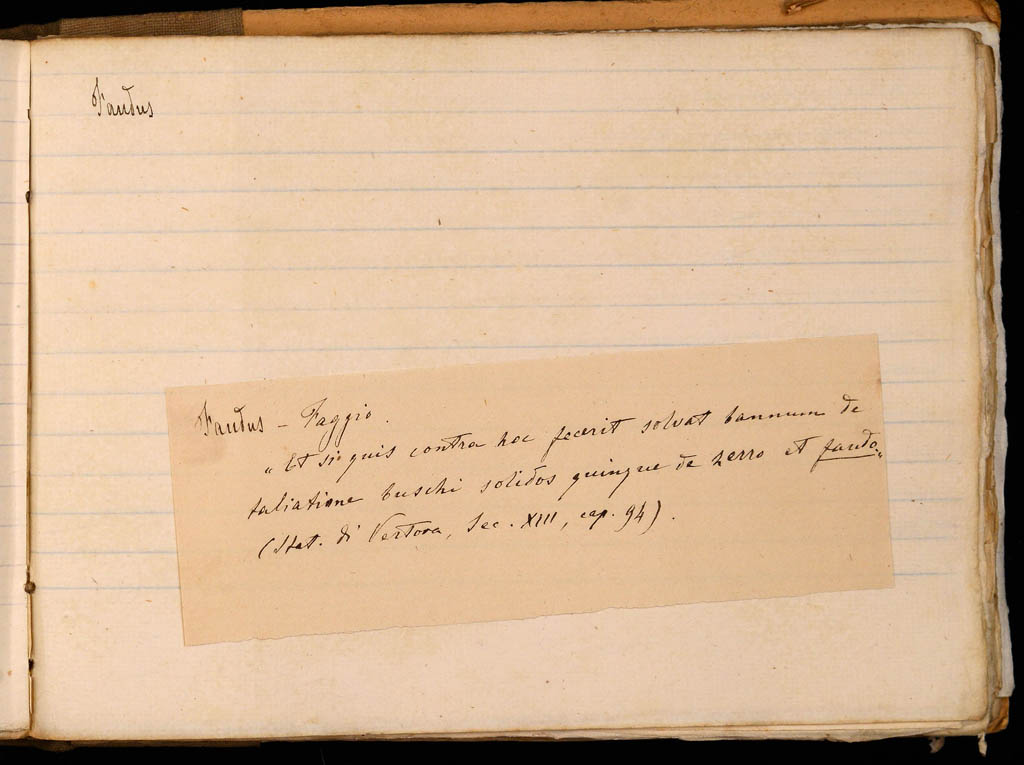 Faudus
Faudus – Faggio.
"Et si quis contra hoc fecerit solvat bannum de
taliatione buschi solidos quinque de zerro et faudo"
(Stat. di Vertova, Sec. XIII, cap. 94).